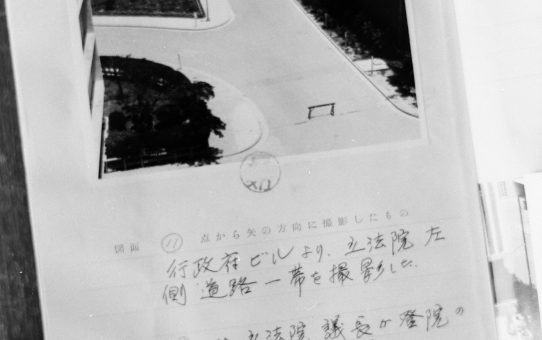 図面 ⑪ 点から矢の方向に撮影したもの
行政府ビルより、立法院左
側道路一帯を撮影した。
立法院議長が登院の